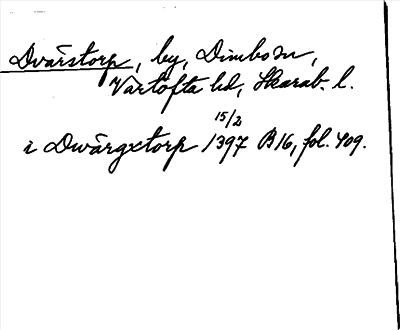 Dvärstorp, by, Dimbo sn,
Vartofta hd, Skarab. l.
15/2
i Dwärgxtorp 1397 B16, fol. 409.